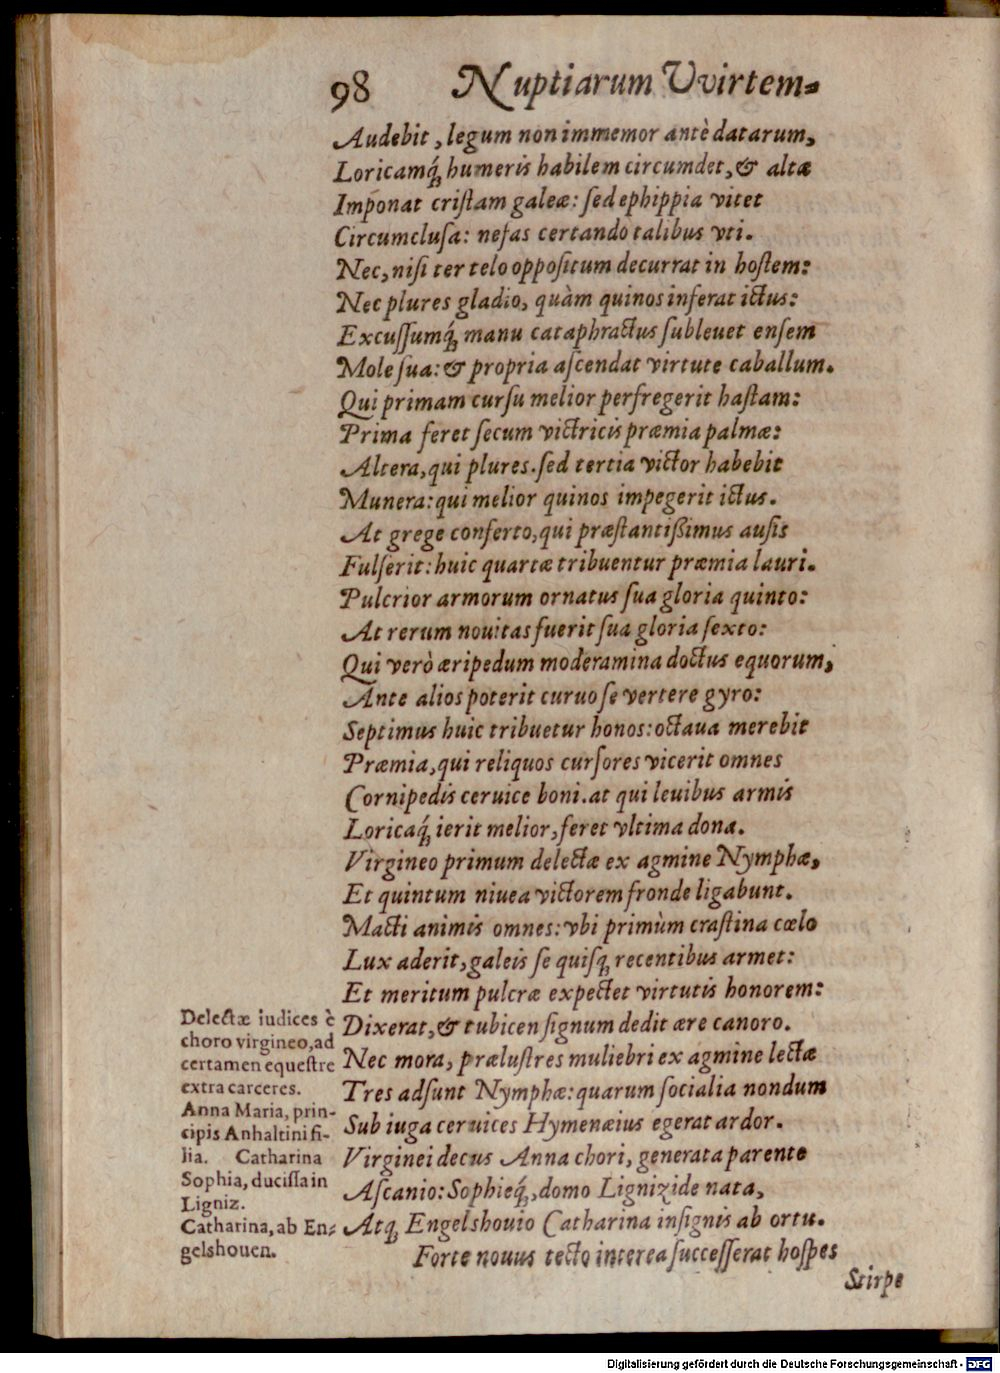 98 Nuptiarum Vvirtem-
Audebit, legum non immemor antè datarum,
Loricamq́; humeris habilem circumdet, & altæ
Imponat criſtam galeæ: ſed ephippia vitet
Circumcluſa: nefas certando talibus vti.
Nec, niſi ter telo oppoſitum decurrat in hoſtem:
Nec plures gladio, quàm quinos inferat ictus:
Excuſſumq́; manu cataphractus ſubleuet enſem
Mole ſua: & propria aſcendat virtute caballum.
Qui primam curſu melior perfregerit haſtam:
Prima feret ſecum victricis præmia palmæ:
Altera, qui plures. ſed tertia victor habebit
Munera: qui melior quinos impegerit ictus.
At grege conferto, qui præſtantißimus auſis
Fulſerit: huic quartæ tribuentur præmia lauri.
Pulcrior armorum ornatus ſua gloria quinto:
At rerum nouitas fuerit ſua gloria ſexto:
Qui verò æripedum moderamina doctus equorum,
Ante alios poterit curuo ſe vertere gyro:
Septimus huic tribuetur honos: octaua merebit
Præmia, qui reliquos curſores vicerit omnes
Cornipedis ceruice boni. at qui leuibus armis
Loricaq́; ierit melior, feret vltima dona.
Virgineo primum delectæ ex agmine Nymphæ,
Et quintum niuea victorem fronde ligabunt.
Macti animis omnes: vbi primùm craſtina cælo
Lux aderit, galeis ſe quiſq; recentibus armet:
Et meritum pulcræ expectet virtutis honorem:
Dixerat, & tubicen ſignum dedit ære canoro.
Nec mora, præluſtres muliebri ex agmine lectæ
Tres adſunt Nymphæ: quarum ſocialia nondum
Sub iuga ceruices Hymenæius egerat ardor.
Virginei decus Anna chori, generata parente
Aſcanio: Sophieq́;, domo Lignizide nata,
Atq; Engelshouio Catharina inſignis ab ortu.
Forte nouus tecto interea ſucceſſerat hoſpes
Stirpe
Delectæ iudices è
choro virgineo, ad
certamen equeſtre
extra carceres.
Anna Maria, prin-
cipis Anhaltini fi-
lia. Catharina
Sophia, duciſſa in
Ligniz.
Catharina, ab En-
gelshouen.
Digitalisierung gefördert durch die Deutsche Forschungsgemeinschaft - DFG